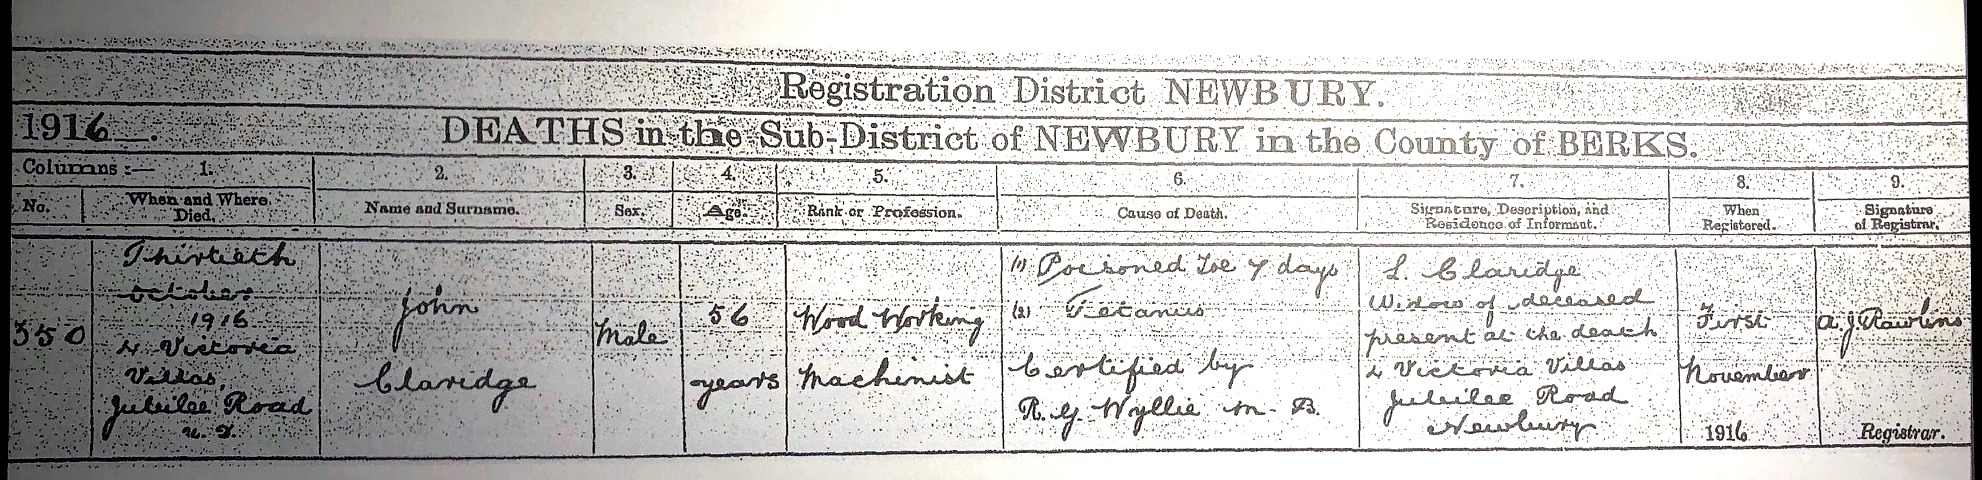 Registration District NEWBURY.
1916. DEATHS in the Sub-District of NEWBURY in the County of BERKS.
Columns :— 1. 2. 3. 4. 5. 6. 7. 8. 9.
No. When and Where Died. Name and Surname. Sex. Age. Rank or Profession. Cause of Death. Signature, Description, and Residence of Informant. When Registered. Signature of Registrar.
350
Thirtieth
October
1916
4 Victoria
Villas,
Jubilee Road
John
Claridge
Male
56
years
Wood Working
Machinist
(1) Poisoned Toe 7 days
(2) Tetanus
Certified by
R. G. Wyllie M. B.
L. Claridge
Widow of deceased
present at the death
4 Victoria Villas
Jubilee Road
Newbury
First
November
1916
A J Rawlins
Registrar.